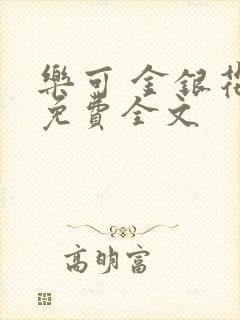 樂可 金銀花
免費全文
高明富